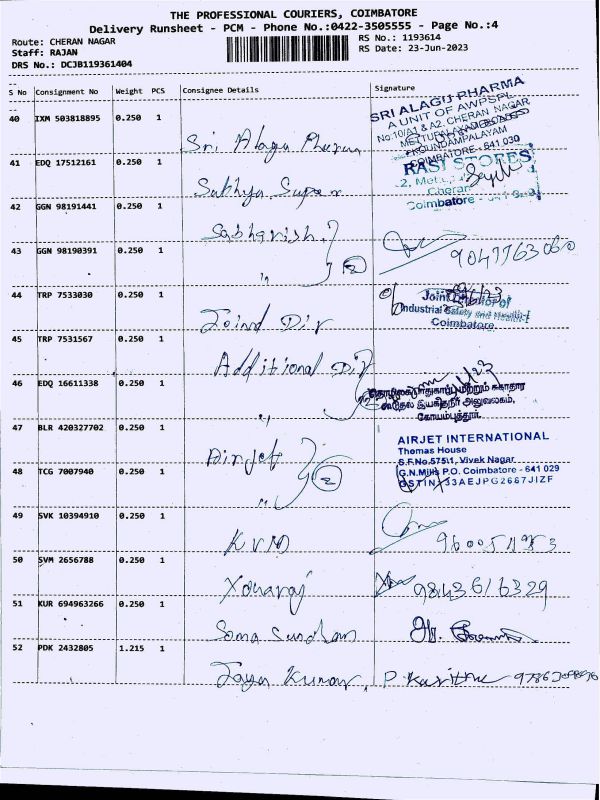 THE PROFESSIONAL COURIERS, COIMBATORE
Delivery Runsheet - PCM - Phone No.:0422-3505555 - Page No.:4
Route: CHERAN NAGAR
RS No.: 1193614
Staff: RAJAN
RS Date: 23-Jun-2023
DRS No.: DCJB119361404
S No Consignment No Weight PCS Consignee Details Signature
40 IXM 503818895 0.250 1
Sri Alagu Pharma
SRI ALAGU PHARMA
A UNIT OF AWPSPL
No.10/A1 & A2, CHERAN NAGAR
METTUPALAYAM ROAD
GOUNDAMPALAYAM
COIMBATORE - 641 030
41 EDQ 17512161 0.250 1
Sabhya Super
RASI STORES
Cheran
Coimbatore
42 GGN 98191441 0.250 1
Sabharish
43 GGN 98190391 0.250 1
" 2
9047763060
44 TRP 7533030 0.250 1
Joind Dir
Joint Director of
Industrial Safety and Health-I
Coimbatore
45 TRP 7531567 0.250 1
Additional Dir
46 EDQ 16611338 0.250 1
"
கோயம்புத்தூர்.
47 BLR 420327702 0.250 1
Airjet
AIRJET INTERNATIONAL
Thomas House
S.F.No.575/1, Vivek Nagar
G.N.Mills P.O. Coimbatore - 641 029
GSTIN: 33AEJPG2687J1ZF
48 TCG 7007940 0.250 1
" 2
49 SVK 10394910 0.250 1
KVM
50 SVM 2656788 0.250 1
Yonaraj
9843616329
51 KUR 694963266 0.250 1
Soma Sundham
52 PDK 2432805 1.215 1
Jaya Kumar, P. Kavitha